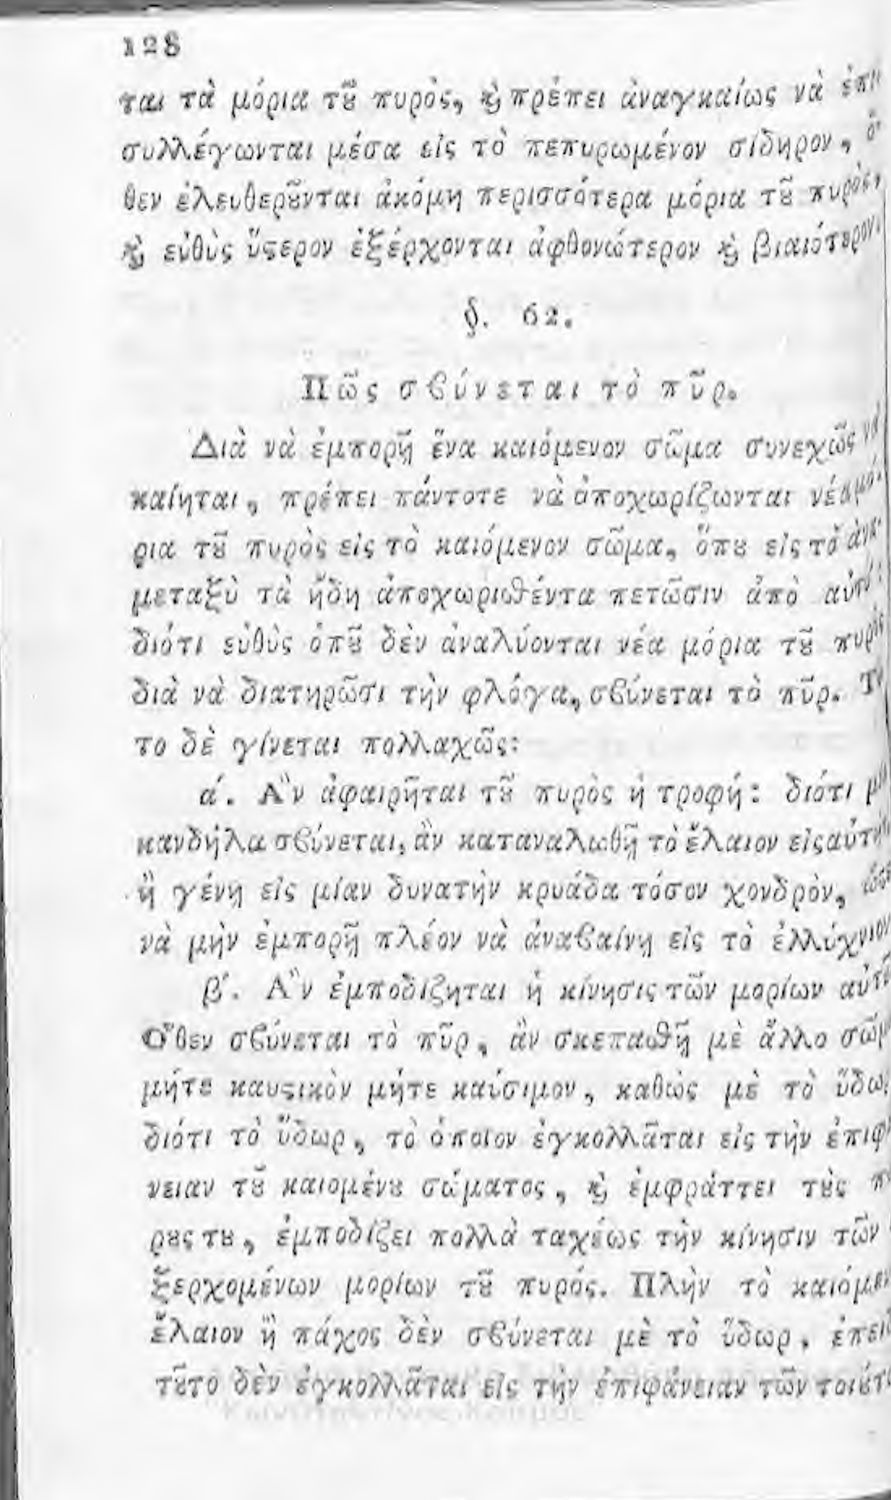 128
ται τὰ μόρια τȣ͂ πυρὸς, ϗ̀ πρέπει ἀναγκαίως νὰ
συλλέγωνται μέσα εἰς τὸ πεπυρωμένον σίδηρον,
θεν ἐλευθερȣ͂νται ἀκόμη περισσότερα μόρια τȣ͂ πυρὸς,
ϗ̀ εὐθὺς ὕϛερον ἐξέρχονται ἀφθονώτερον ϗ̀ βιαιότερον.
§. 62.
Πῶς σϐύνεται τὸ πῦρ.
Διὰ νὰ ἐμπορῇ ἕνα καιόμενον σῶμα συνεχῶς νὰ
καίηται, πρέπει πάντοτε νὰ ἀποχωρίζωνται νέα μό-
ρια τȣ͂ πυρὸς εἰς τὸ καιόμενον σῶμα, ὅπȣ εἰς τὸ ἀνα-
μεταξὺ τὰ ἤδη ἀποχωρισθέντα πετῶσιν ἀπὸ
διότι εὐθὺς ὁπȣ͂ δὲν ἀναλύονται νέα μόρια τȣ͂ πυρὸς
διὰ νὰ διατηρῶσι τὴν φλόγα, σϐύνεται τὸ πῦρ.
το δὲ γίνεται πολλαχῶς:
α΄. Ἂν ἀφαιρῆται τȣ͂ πυρὸς ἡ τροφή: διότι
κανδήλα σϐύνεται, ἂν καταναλωθῇ τὸ ἔλαιον εἰς αὐτὴν
ἢ γένῃ εἰς μίαν δυνατὴν κρυάδα τόσον χονδρὸν,
νὰ μὴν ἐμπορῇ πλέον νὰ ἀναϐαίνῃ εἰς τὸ ἐλλύχνιον
β΄. Ἂν ἐμποδίζηται ἡ κίνησις τῶν μορίων
Ὅθεν σϐύνεται τὸ πῦρ, ἂν σκεπασθῇ μὲ ἄλλο σῶμ
μήτε καυϛικὸν μήτε καύσιμον, καθὼς μὲ τὸ ὕδωρ
διότι τὸ ὕδωρ, τὸ ὁποῖον ἐγκολλᾶται εἰς τὴν ἐπιφ
νειαν τȣ͂ καιομένȣ σώματος, ϗ̀ ἐμφράττει τȣ̀ς
ρȣς τȣ, ἐμποδίζει πολλὰ ταχέως τὴν κίνησιν τῶν
ξερχομένων μορίων τȣ͂ πυρός. Πλὴν τὸ καιόμεν
ἔλαιον ἢ πάχος δὲν σϐύνεται μὲ τὸ ὕδωρ, ἐπει
τȣ͂το δὲν ἐγκολλᾶται εἰς τὴν ἐπιφάνειαν τῶν τοιȣ́τ